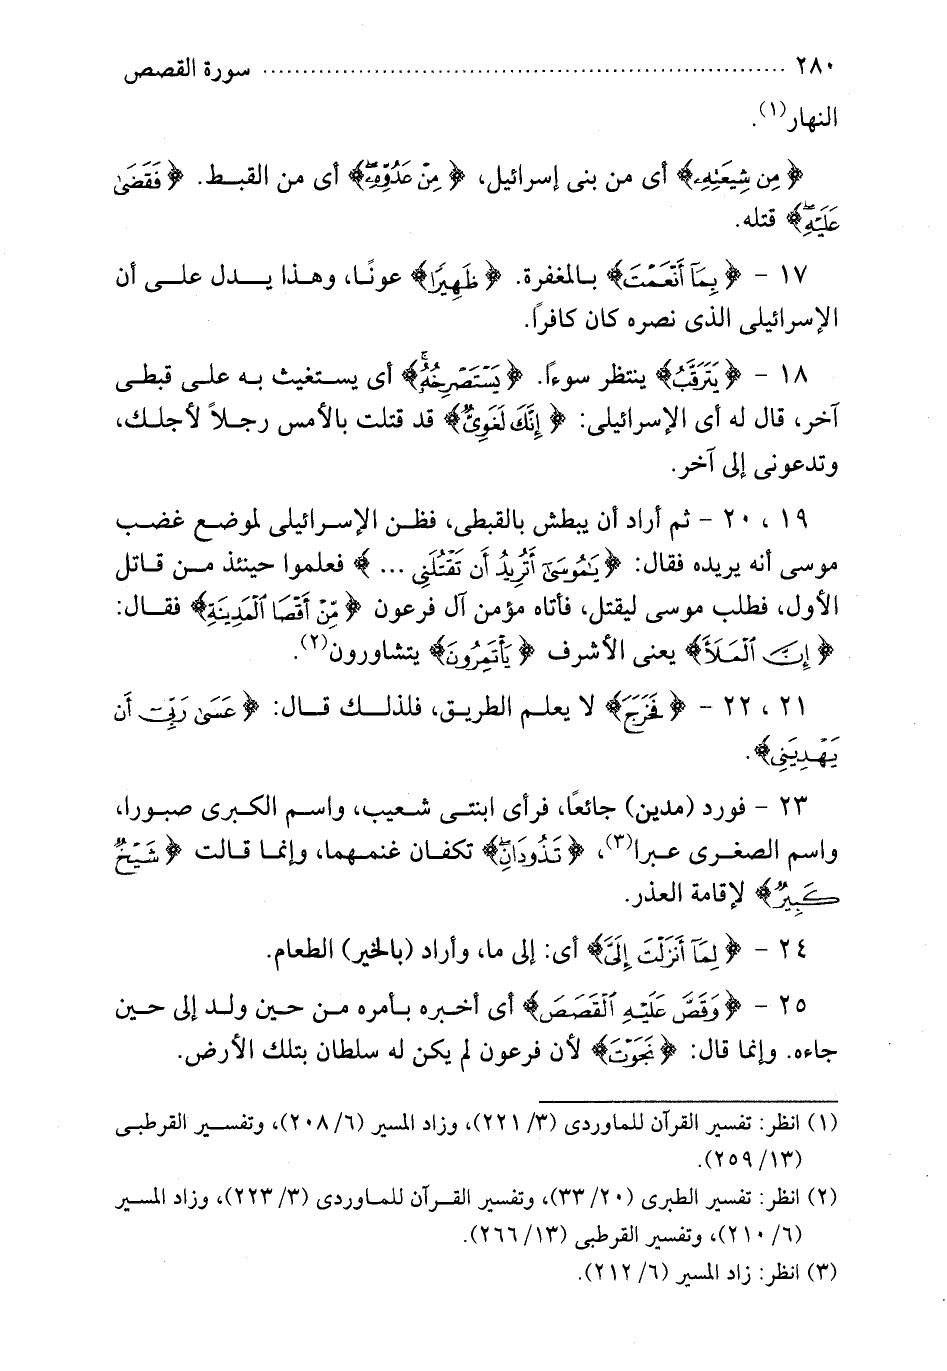 ٢٨٠ ............................................................ سورة القصص
النهار(١).
﴿مِن شِيعَتِهِۦ﴾ أى من بنى إسرائيل، ﴿مِنْ عَدُوِّهِۦۖ﴾ أى من القبط. ﴿فَقَضَىٰ
عَلَيْهِۖ﴾ قتله.
١٧ - ﴿بِمَآ أَنْعَمْتَ﴾ بالمغفرة. ﴿ظَهِيرًا﴾ عونًا، وهذا يدل على أن
الإسرائيلى الذى نصره كان كافراً.
١٨ - ﴿يَتَرَقَّبُ﴾ ينتظر سوءاً. ﴿يَسْتَصْرِخُهُۥۚ﴾ أى يستغيث به على قبطى
آخر، قال له أى الإسرائيلى: ﴿إِنَّكَ لَغَوِىٌّ﴾ قد قتلت بالأمس رجلاً لأجلك،
وتدعونى إلى آخر.
١٩ ، ٢٠ - ثم أراد أن يبطش بالقبطى، فظن الإسرائيلى لموضع غضب
موسى أنه يريده فقال: ﴿يَٰمُوسَىٰٓ أَتُرِيدُ أَن تَقْتُلَنِى ...﴾ فعلموا حينئذ من قاتل
الأول، فطلب موسى ليقتل، فأتاه مؤمن آل فرعون ﴿مِّنْ أَقْصَا ٱلْمَدِينَةِ﴾ فقال:
﴿إِنَّ ٱلْمَلَأَ﴾ يعنى الأشرف ﴿يَأْتَمِرُونَ﴾ يتشاورون(٢).
٢١ ، ٢٢ - ﴿فَخَرَجَ﴾ لا يعلم الطريق، فلذلك قال: ﴿عَسَىٰ رَبِّىٓ أَن
يَهْدِيَنِى﴾.
٢٣ - فورد (مدين) جائعًا، فرأى ابنتى شعيب، واسم الكبرى صبورا،
واسم الصغرى عبرا(٣)، ﴿تَذُودَانِۖ﴾ تكفان غنمهما، وإنما قالت ﴿شَيْخٌ
كَبِيرٌ﴾ لإقامة العذر.
٢٤ - ﴿لِمَآ أَنزَلْتَ إِلَىَّ﴾ أى: إلى ما، وأراد (بالخير) الطعام.
٢٥ - ﴿وَقَصَّ عَلَيْهِ ٱلْقَصَصَ﴾ أى أخبره بأمره من حين ولد إلى حين
جاءه. وإنما قال: ﴿نَجَوْتَ﴾ لأن فرعون لم يكن له سلطان بتلك الأرض.
(١) انظر: تفسير القرآن للماوردى (٣/ ٢٢١)، وزاد المسير (٦/ ٢٠٨)، وتفسير القرطبى
(١٣/ ٢٥٩).
(٢) انظر: تفسير الطبرى (٢٠/ ٣٣)، وتفسير القرآن للماوردى (٣/ ٢٢٣)، وزاد المسير
(٦/ ٢١٠)، وتفسير القرطبى (١٣/ ٢٦٦).
(٣) انظر: زاد المسير (٦/ ٢١٢).